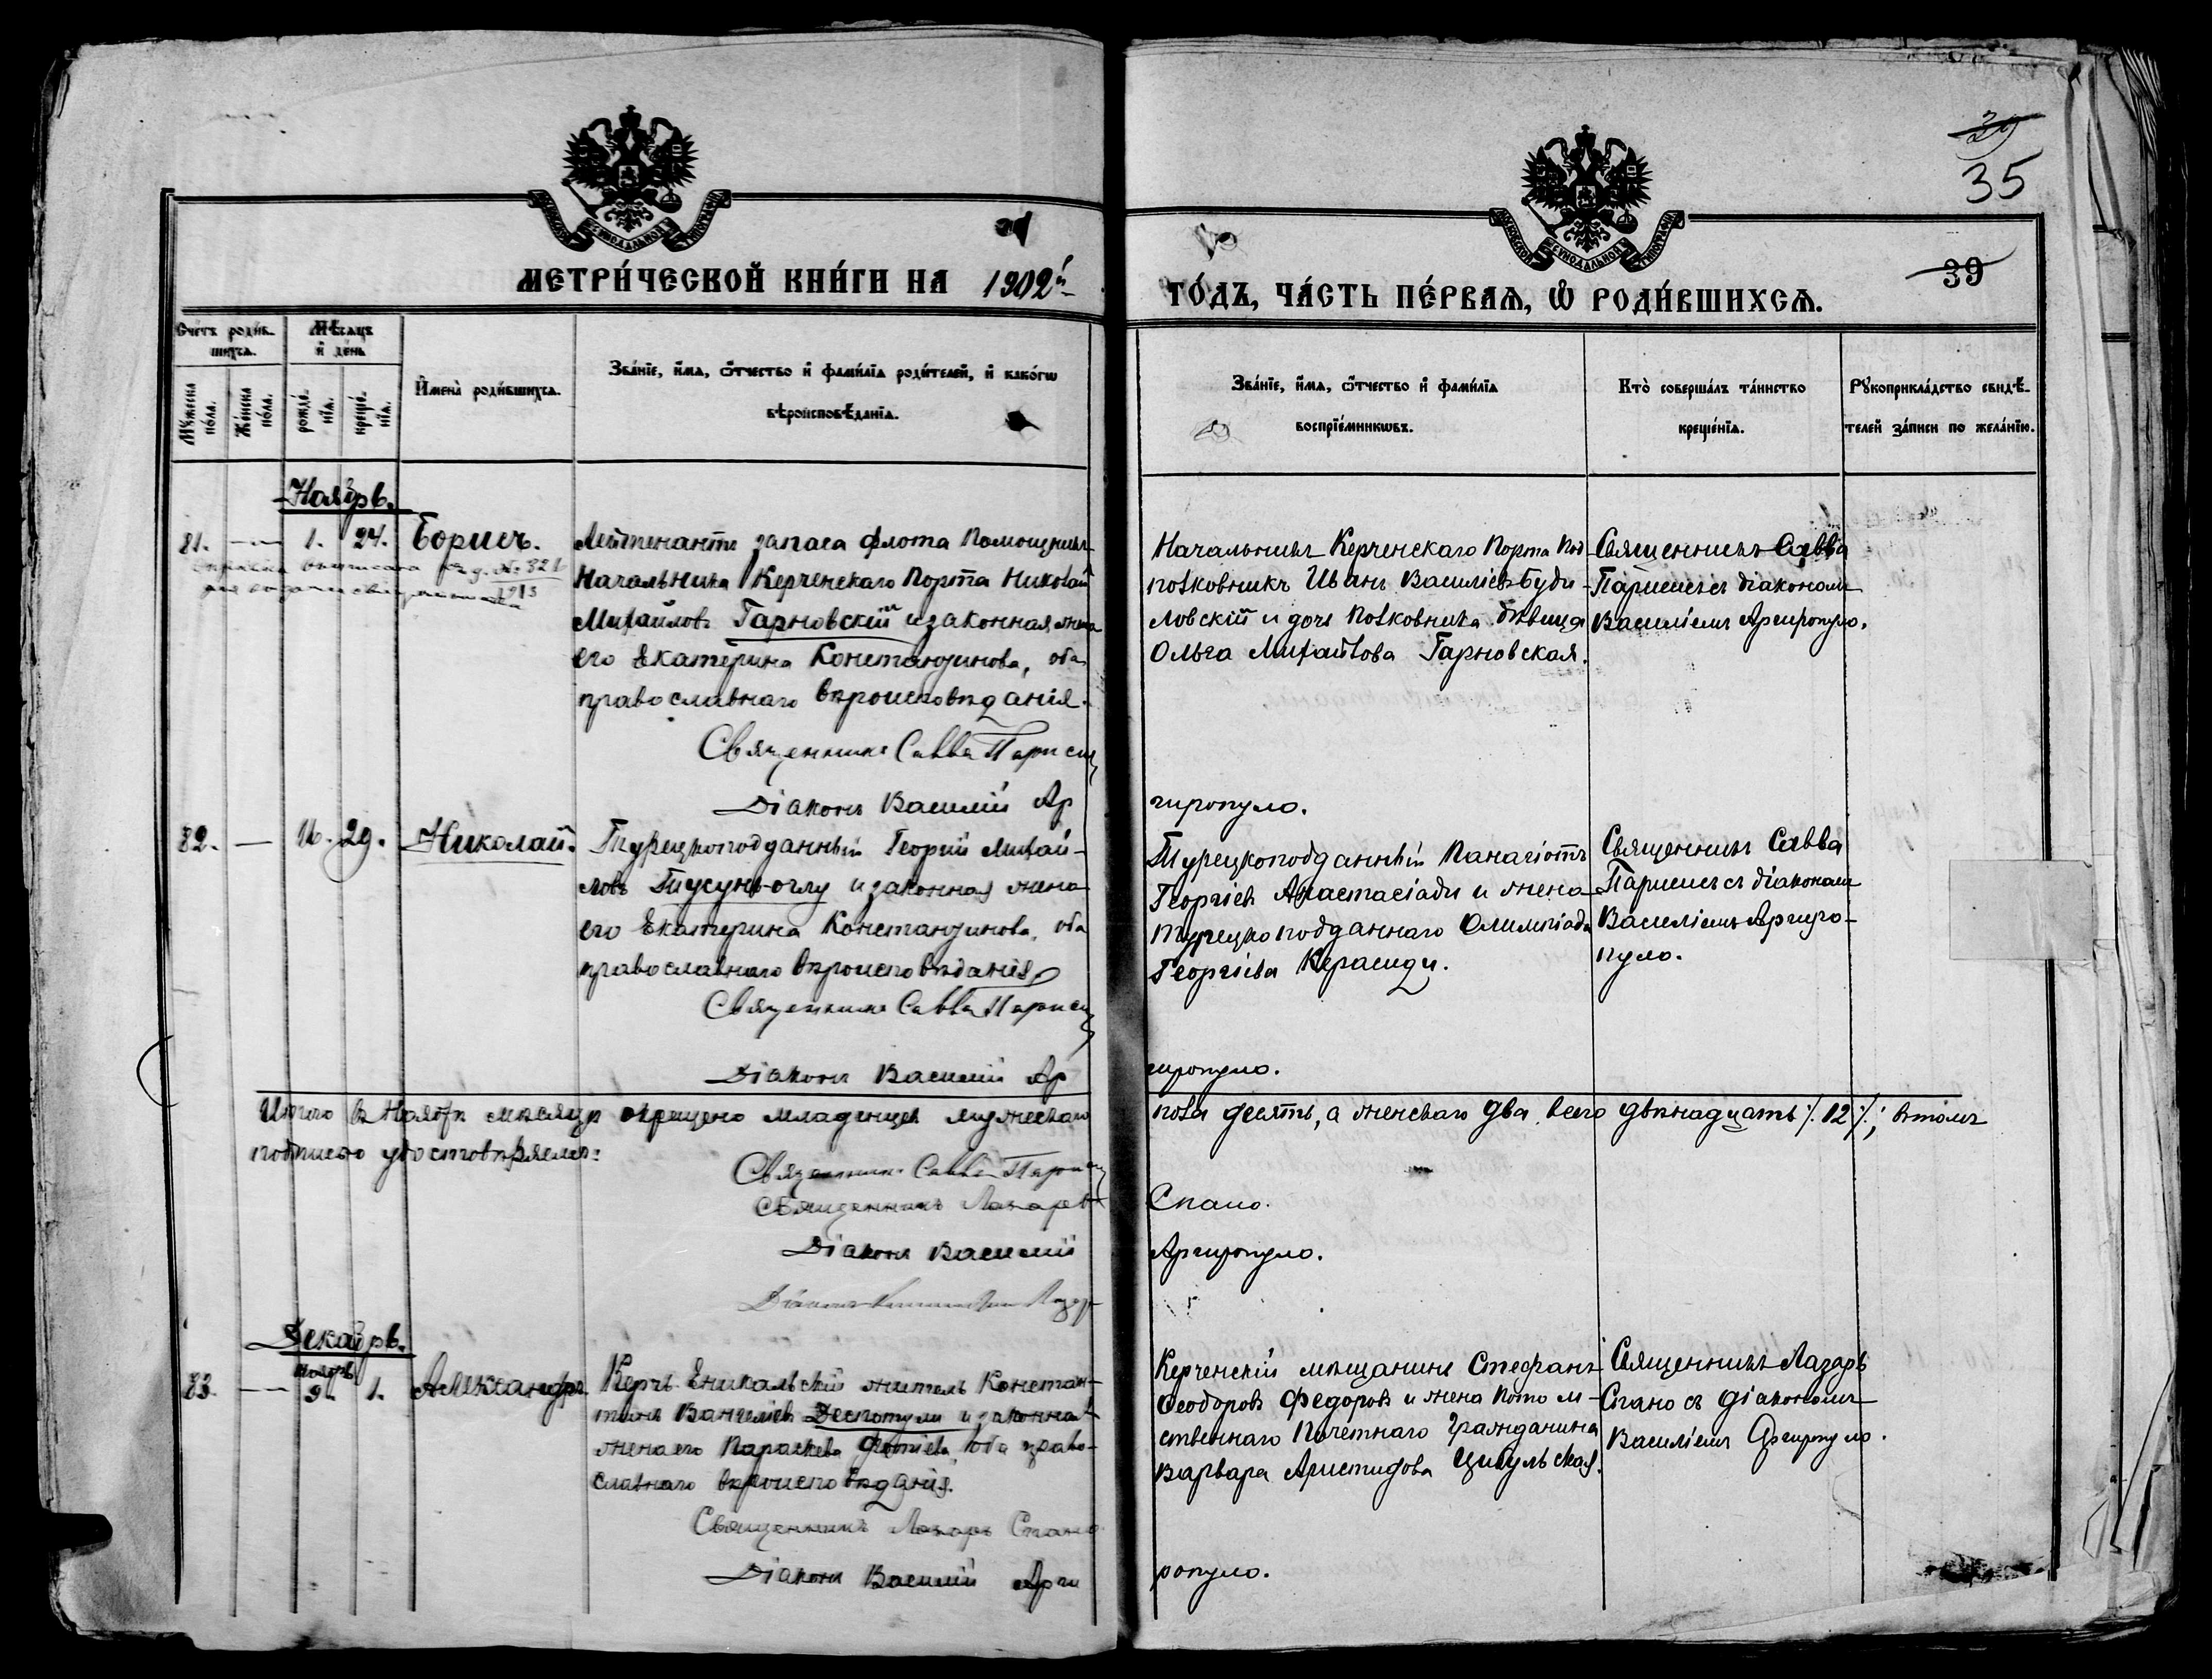 39
35
39
МЕТРИ́ЧЕСКОЙ КНИ́ГИ НА 1902й
ГО́ДЪ, ЧА́СТЬ ПЕ́РВАЯ, Ѡ҆ РОДИ́ВШИХСЯ.
Сче́тъ роди́в-
шихся.
Мѣ́сяцъ
и҆ де́нь
Му́жеска
по́ла.
Же́нска
по́ла.
рожде́-
нїя.
креще́-
нїя.
И҆мена̀ роди́вшихся.
Зва́нїе, и҆́мя, ѻ҆́тчество и҆ фами́лїа роди́телей, и҆ како́гѡ
вѣроисповѣ́данїя.
Зва́нїе, и҆́мя, ѻ҆́тчество и҆ фами́лїа
воспрїе́мникѡвъ.
Кто̀ соверша́лъ та́инство
креще́нїя.
Рꙋкоприкла́дство свидѣ́-
телей за́писи по жела́нїю.
Ноябрь.
81. — 1. 24. Борисъ.
№ 321
1913
Лейтенантъ запаса флота Помощникъ
Начальника Керченскаго Порта Николай
Михайловъ Гарновскій и законная жена
его Екатерина Константинова, оба
православнаго вѣроисповѣданія.
Священникъ Савва Париси
Діаконъ Василій Ар
Начальникъ Керченскаго Порта Под-
полковникъ Иванъ Василіевъ Буди-
ловскій и дочь Полковника дѣвица
Ольга Михайлова Гарновская.
гиропуло.
Священникъ Савва
Парисисъ діакономъ
Василіемъ Аргиропуло.
82. — 16. 29. Николай.
Турецкоподданный Георгій Михай-
ловъ Тусунъ-оглу и законная жена
его Екатерина Константинова, оба
православнаго вѣроисповѣданія
Священникъ Савва Париси
Діаконъ Василій Ар
Турецкоподданный Панагіотъ
Георгіевъ Анастасіади и жена
турецкоподданнаго Олимпіада
Георгіева Керасиди.
гиропуло.
Священникъ Савва
Парисисъ діакономъ
Василіемъ Аргиро-
пуло.
Итого въ Ноябрѣ мѣсяцѣ окрещено младенцевъ мужескаго
пола десять, а женскаго два, всего двѣнадцать /. 12 /.; въ томъ
подписью удостовѣряемъ:
Священникъ Савва Париси
Священникъ Лазарь
Спано.
Діаконъ Василій
Аргиропуло.
Діаконъ
Декабрь.
83. — Ноябрь 9. 1. Александръ.
Керчь-Еникальскій житель Констан-
тинъ Вангеліевъ Деспотули и законная
жена его Параскева, оба право-
славнаго вѣроисповѣданія.
Священникъ Лазарь Спано
Діаконъ Василій Арги
Керченскій мѣщанинъ Стефанъ
Ѳеодоровъ Федоровъ и жена Потом-
ственнаго Почетнаго Гражданина
Варвара Аристидова Цигульская.
ропуло.
Священникъ Лазарь
Спано съ діакономъ
Василіемъ Аргиропуло.